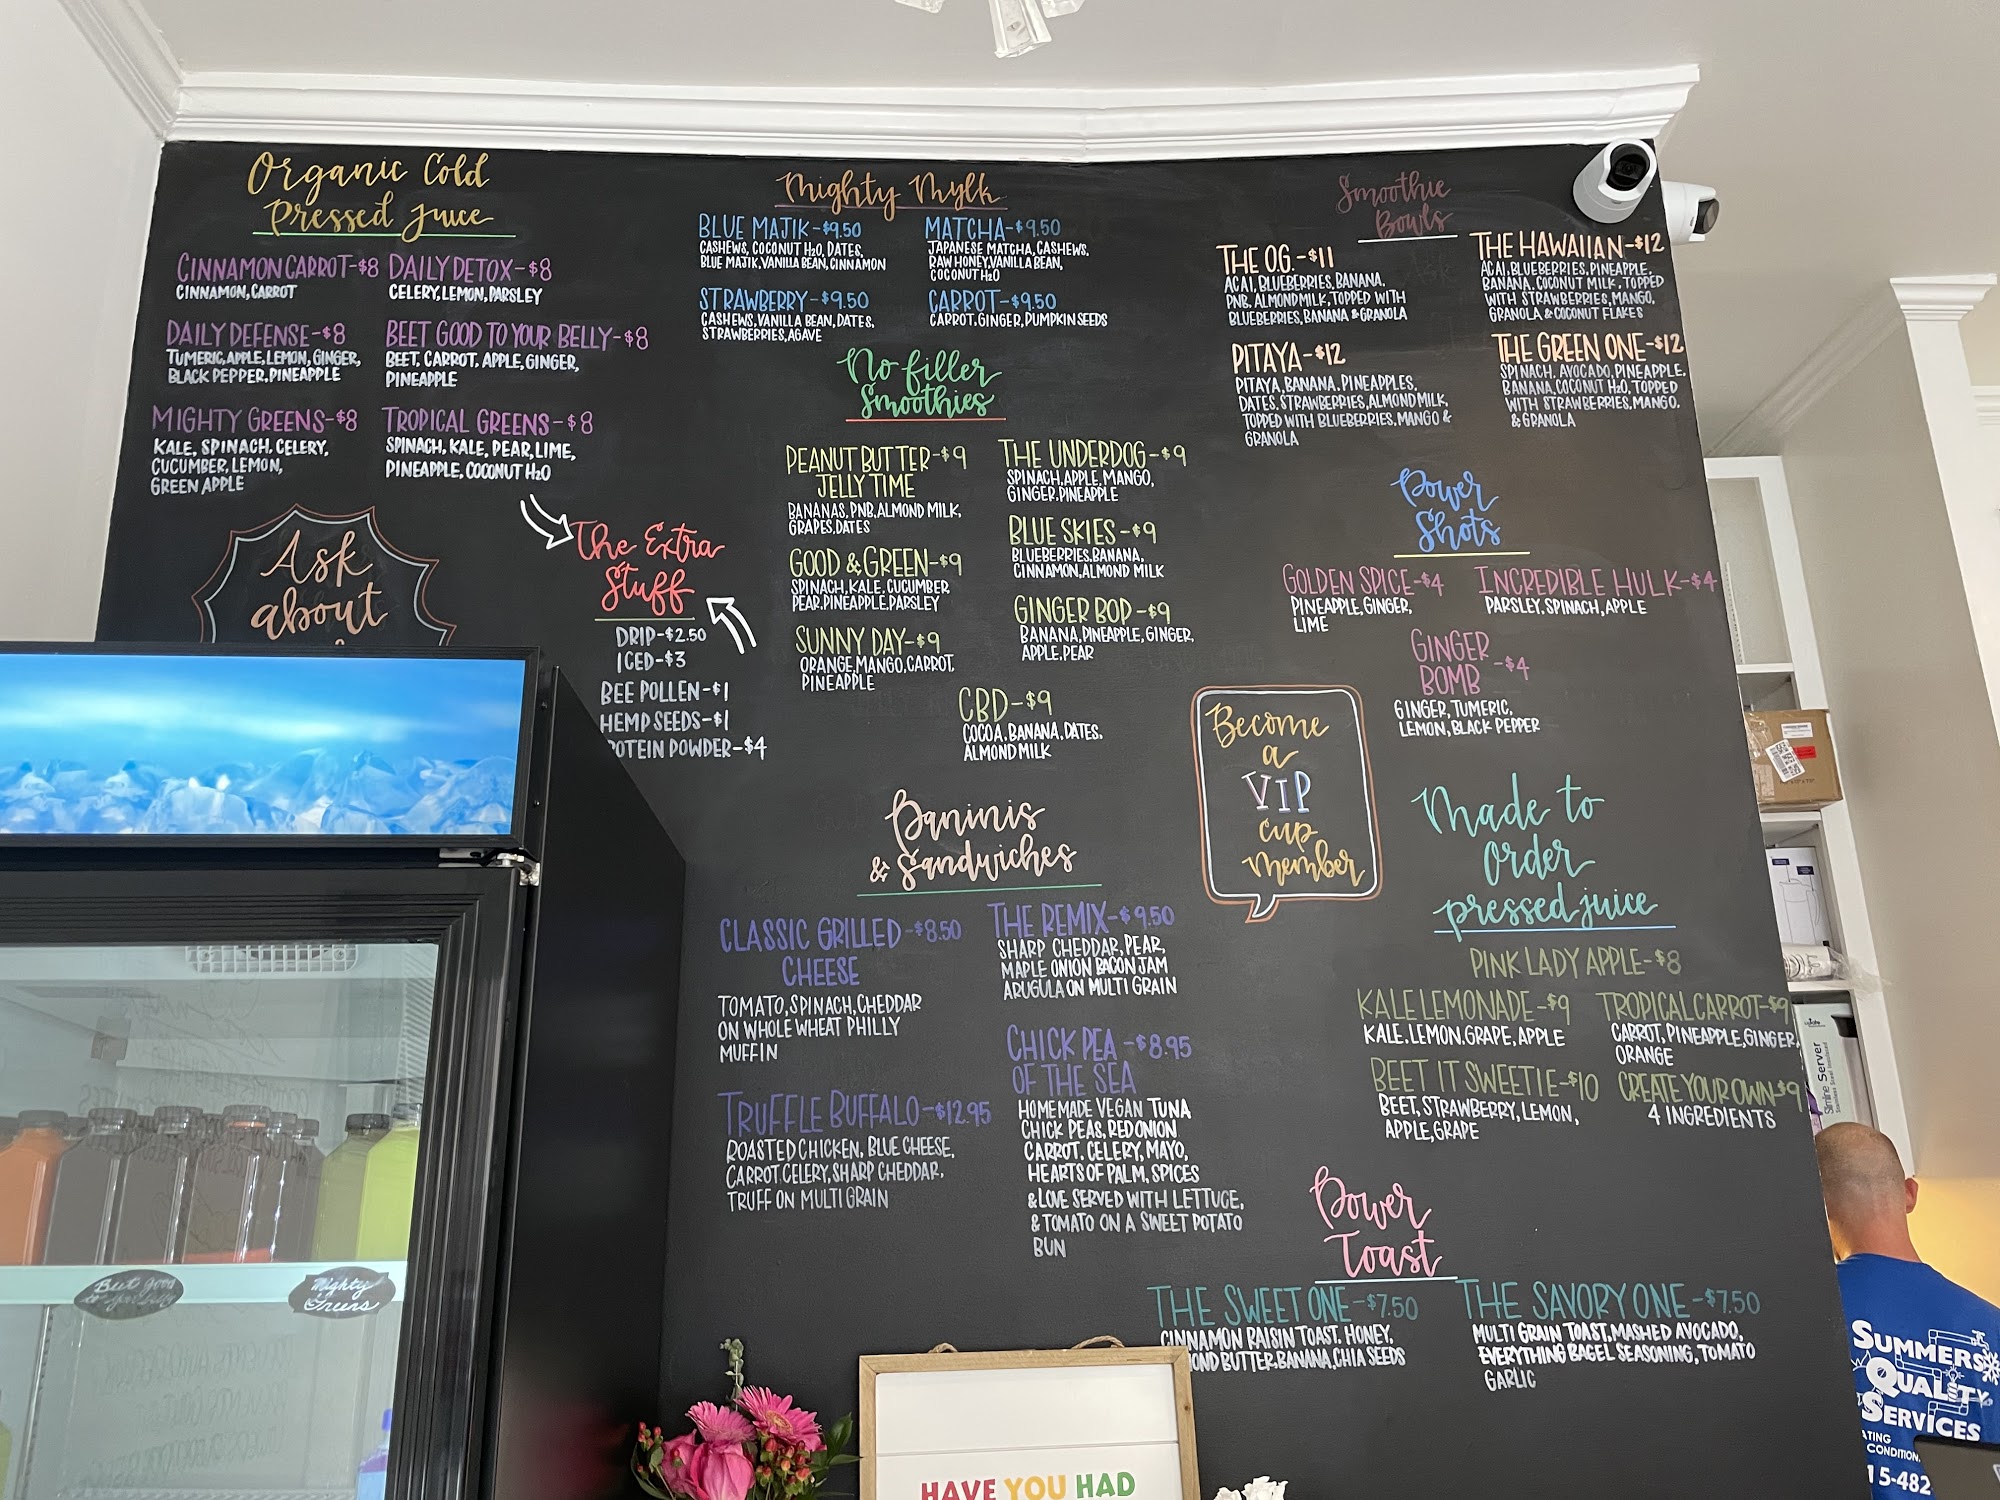 Organic Cold
Pressed Juice
CINNAMON CARROT-$8
CINNAMON, CARROT
DAILY DETOX-$8
CELERY, LEMON, PARSLEY
DAILY DEFENSE-$8
TUMERIC, APPLE, LEMON, GINGER,
BLACK PEPPER, PINEAPPLE
BEET GOOD TO YOUR BELLY-$8
BEET, CARROT, APPLE, GINGER,
PINEAPPLE
MIGHTY GREENS-$8
KALE, SPINACH, CELERY,
CUCUMBER, LEMON,
GREEN APPLE
TROPICAL GREENS-$8
SPINACH, KALE, PEAR, LIME,
PINEAPPLE, COCONUT H2O
Ask
about
The Extra
Stuff
DRIP-$2.50
ICED-$3
BEE POLLEN-$1
HEMP SEEDS-$1
ROTEIN POWDER-$4
Mighty Mylk
BLUE MAJIK-$9.50
CASHEWS, COCONUT H2O, DATES,
BLUE MAJIK, VANILLA BEAN, CINNAMON
MATCHA-$9.50
JAPANESE MATCHA, CASHEWS,
RAW HONEY, VANILLA BEAN,
COCONUT H2O
STRAWBERRY-$9.50
CASHEWS, VANILLA BEAN, DATES,
STRAWBERRIES, AGAVE
CARROT-$9.50
CARROT, GINGER, PUMPKIN SEEDS
No filler
Smoothies
PEANUT BUTTER-$9
JELLY TIME
BANANAS, PNB, ALMOND MILK,
GRAPES, DATES
THE UNDERDOG-$9
SPINACH, APPLE, MANGO,
GINGER, PINEAPPLE
BLUE SKIES-$9
BLUEBERRIES, BANANA,
CINNAMON, ALMOND MILK
GOOD & GREEN-$9
SPINACH, KALE, CUCUMBER
PEAR, PINEAPPLE, PARSLEY
GINGER BOP-$9
BANANA, PINEAPPLE, GINGER,
APPLE, PEAR
SUNNY DAY-$9
ORANGE, MANGO, CARROT,
PINEAPPLE
CBD-$9
COCOA, BANANA, DATES,
ALMOND MILK
Paninis
& Sandwiches
CLASSIC GRILLED-$8.50
CHEESE
TOMATO, SPINACH, CHEDDAR
ON WHOLE WHEAT PHILLY
MUFFIN
THE REMIX-$9.50
SHARP CHEDDAR, PEAR,
MAPLE ONION BACON JAM
ARUGULA ON MULTI GRAIN
TRUFFLE BUFFALO-$12.95
ROASTED CHICKEN, BLUE CHEESE,
CARROT, CELERY, SHARP CHEDDAR,
TRUFF ON MULTI GRAIN
CHICK PEA-$8.95
OF THE SEA
HOMEMADE VEGAN TUNA
CHICK PEAS, RED ONION
CARROT, CELERY, MAYO,
HEARTS OF PALM, SPICES
& LOVE SERVED WITH LETTUCE,
& TOMATO ON A SWEET POTATO
BUN
Smoothie
Bowls
THE O.G.-$11
ACAI, BLUEBERRIES, BANANA,
PNB, ALMOND MILK, TOPPED WITH
BLUEBERRIES, BANANA & GRANOLA
THE HAWAIIAN-$12
ACAI, BLUEBERRIES, PINEAPPLE,
BANANA, COCONUT MILK, TOPPED
WITH STRAWBERRIES, MANGO,
GRANOLA & COCONUT FLAKES
PITAYA-$12
PITAYA, BANANA, PINEAPPLES,
DATES, STRAWBERRIES, ALMOND MILK,
TOPPED WITH BLUEBERRIES, MANGO &
GRANOLA
THE GREEN ONE-$12
SPINACH, AVOCADO, PINEAPPLE,
BANANA, COCONUT H2O, TOPPED
WITH STRAWBERRIES, MANGO,
& GRANOLA
Power
Shots
GOLDEN SPICE-$4
PINEAPPLE, GINGER,
LIME
INCREDIBLE HULK-$4
PARSLEY, SPINACH, APPLE
GINGER
BOMB-$4
GINGER, TUMERIC,
LEMON, BLACK PEPPER
Become
a
VIP
cup
Member
Made to
Order
pressed juice
PINK LADY APPLE-$8
KALE LEMONADE-$9
KALE, LEMON, GRAPE, APPLE
TROPICAL CARROT-$9
CARROT, PINEAPPLE, GINGER,
ORANGE
BEET IT SWEETIE-$10
BEET, STRAWBERRY, LEMON,
APPLE, GRAPE
CREATE YOUR OWN-$9
4 INGREDIENTS
Power
Toast
THE SWEET ONE-$7.50
CINNAMON RAISIN TOAST, HONEY,
OND BUTTER, BANANA, CHIA SEEDS
THE SAVORY ONE-$7.50
MULTI GRAIN TOAST, MASHED AVOCADO,
EVERYTHING BAGEL SEASONING, TOMATO
GARLIC
Beet good
to your belly
Mighty
Greens
HAVE YOU HAD
Slimline Server
SUMMERS
QUALITY
SERVICES
ATING
CONDITION
15-482